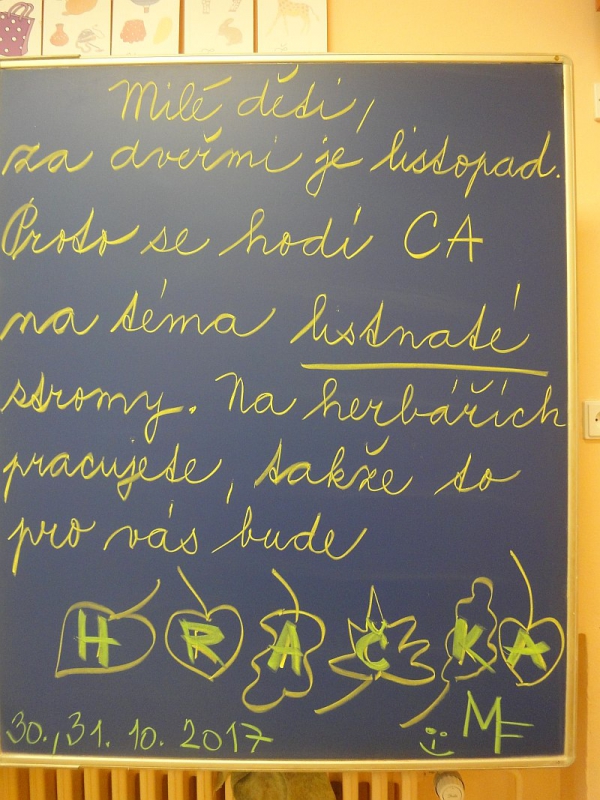 Milé děti,
za dveřmi je listopad.
Proto se hodí CA
na téma listnaté
stromy. Na herbářích
pracujete, takže to
pro vás bude
HRAČKA
30., 31. 10. 2017 MF